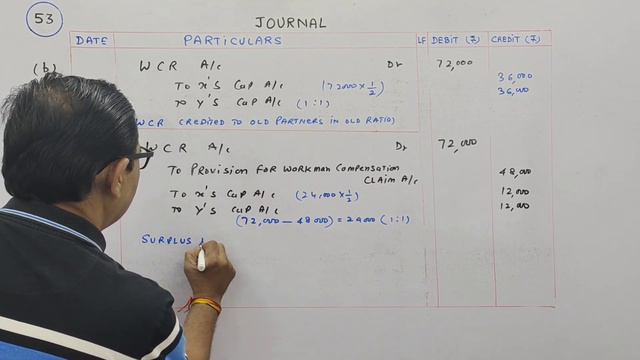 53
JOURNAL
DATE PARTICULARS LF DEBIT (₹) CREDIT (₹)
(b) WCR A/c Dr 72,000
To X'S CaP A/c (72000 × 1/2) 36,000
To Y'S CaP A/c (1:1) 36,000
WCR CREDITED TO OLD PARTNERS IN OLD RATIO)
WCR A/c Dr 72,000
To PROVISION FOR WORKMAN COMPENSATION
CLAIM A/c 48,000
To X'S CaP A/c (24,000 × 1/2) 12,000
To Y'S CaP A/c 12,000
(72,000 – 48000) = 24000 (1:1)
SURPLUS